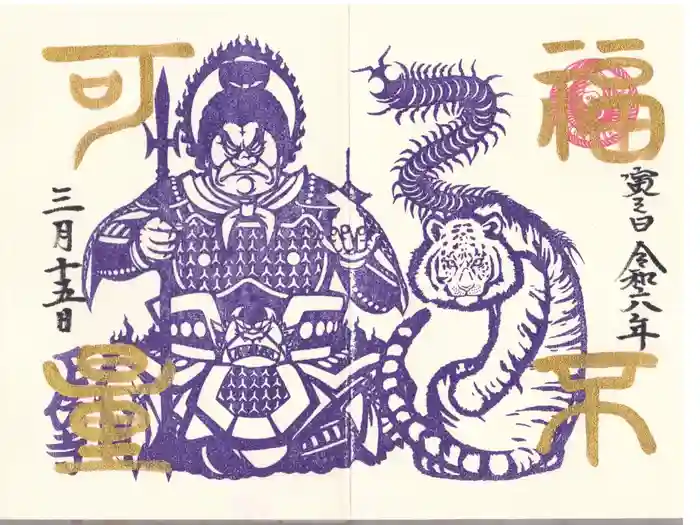 福
不
寅之日 令和六年
可
量
三月十五日